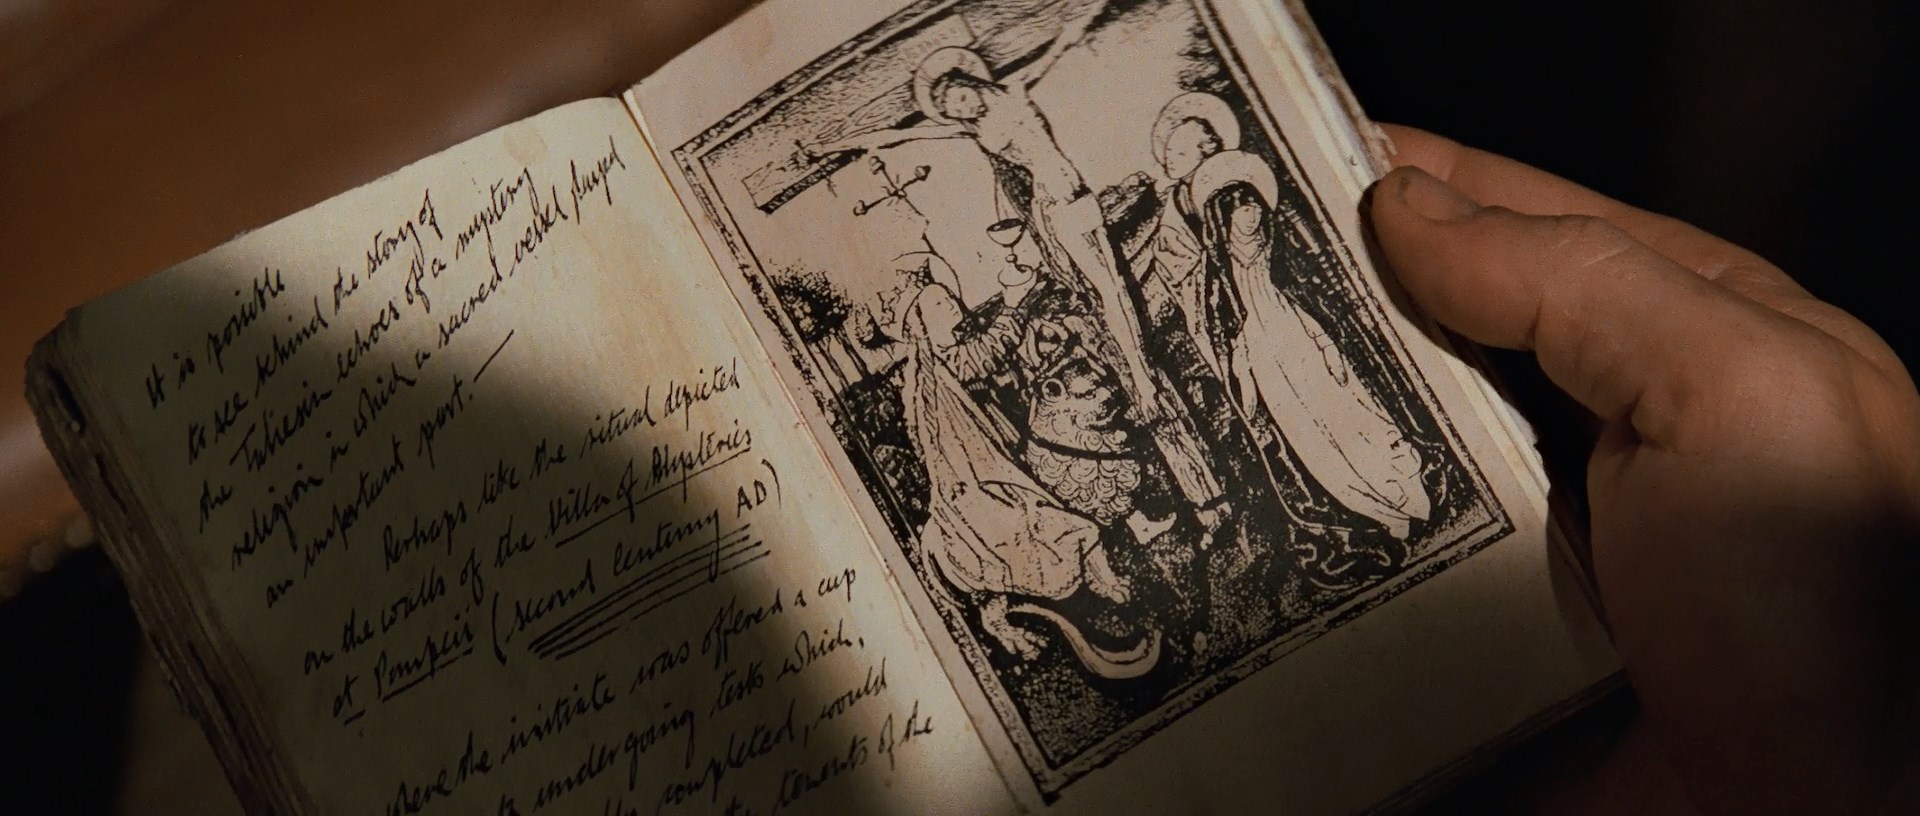 It is possible
to see behind the story of
the Taliesin echoes of a mystery
religion in which a sacred vessel played
an important part. —
Perhaps like the ritual depicted
on the walls of the Villa of Mysteries
at Pompeii (second Century AD)
where the initiate was offered a cup
undergoing tests which,
completed, would
tenents of the